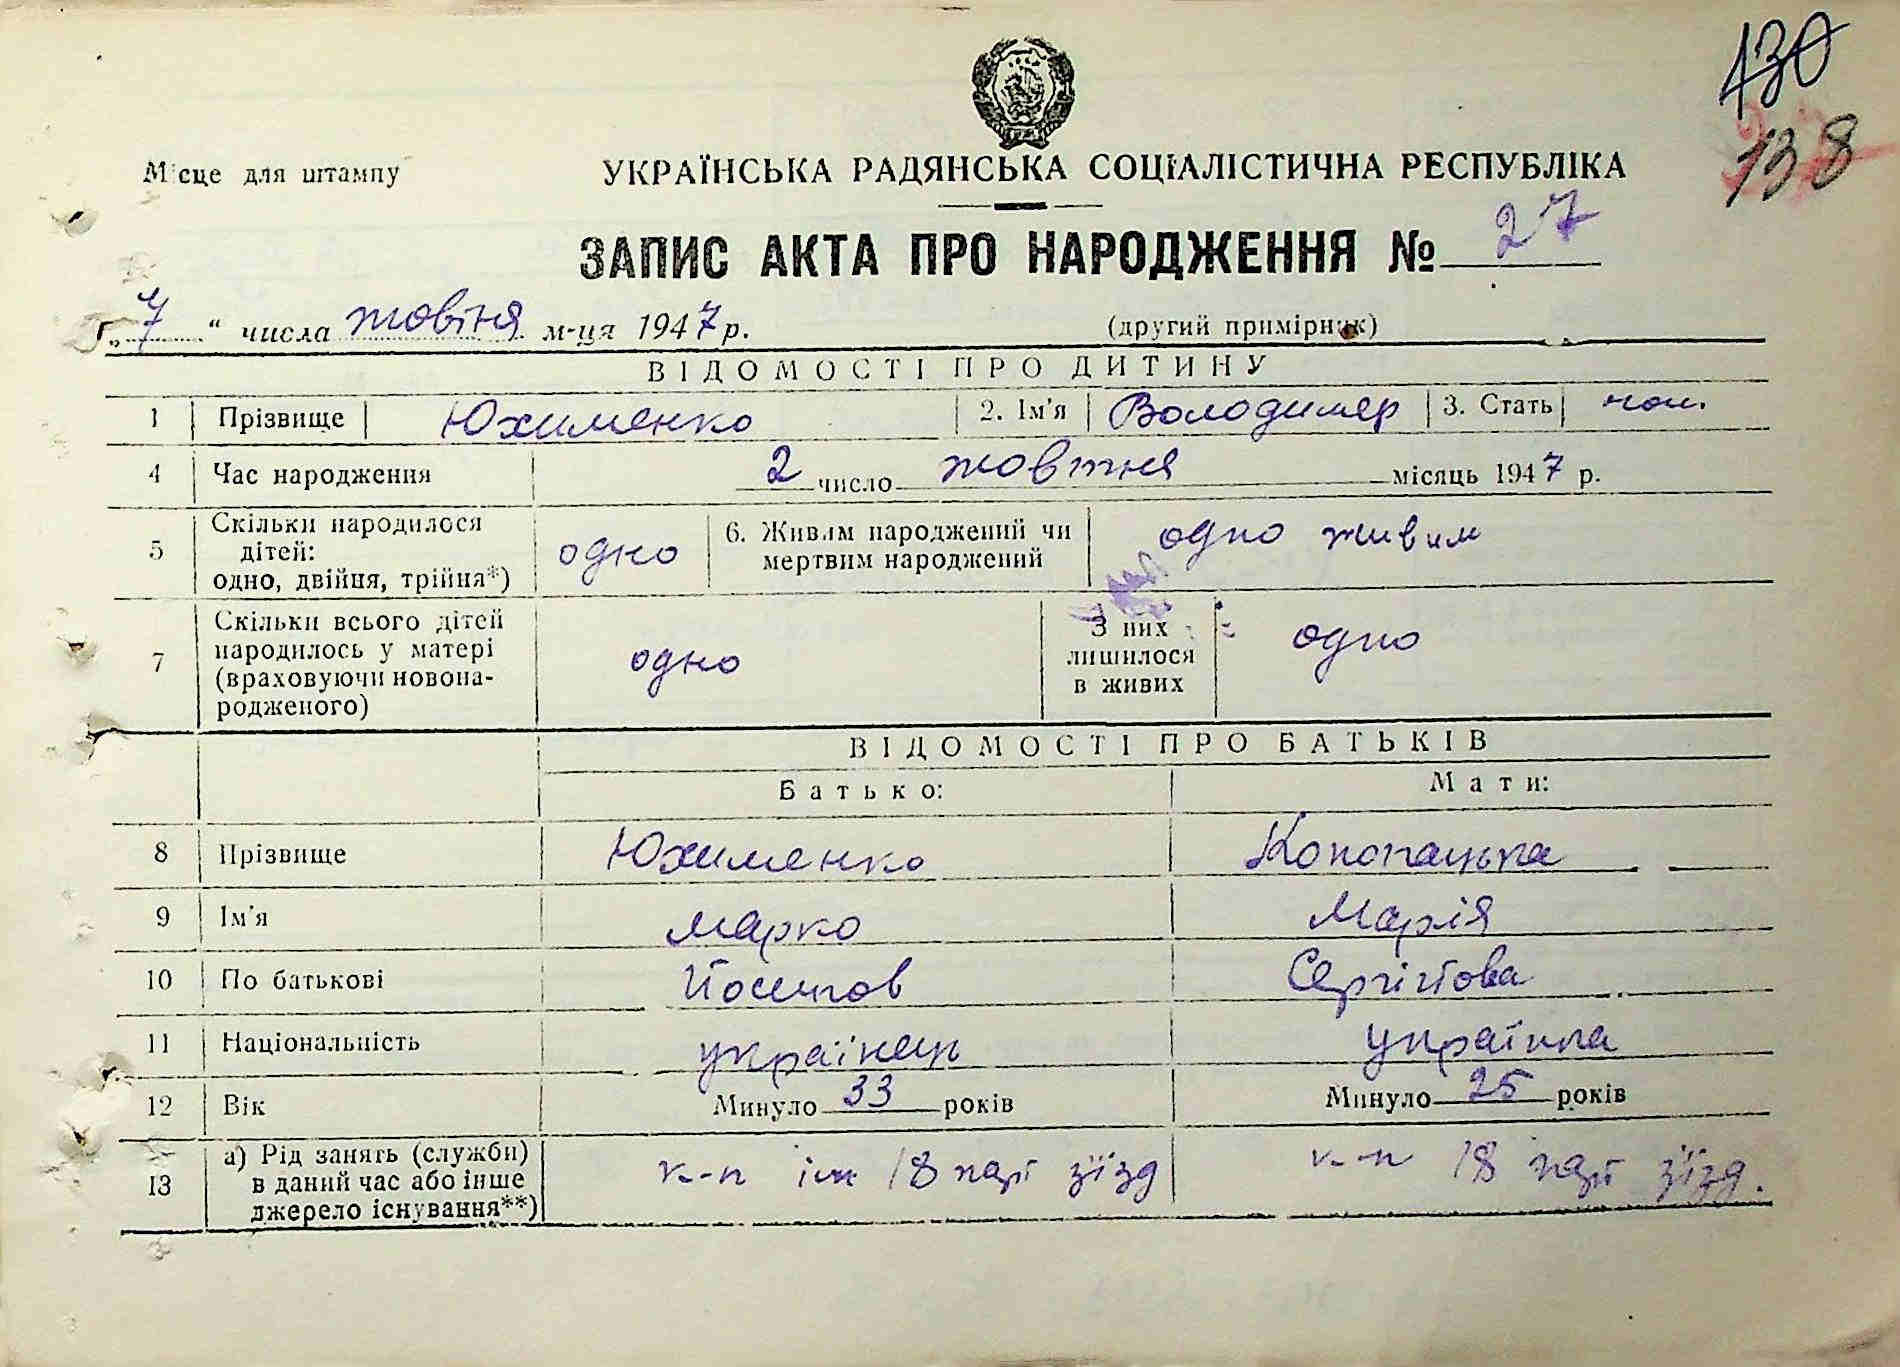 430
138
Місце для штампу
УКРАЇНСЬКА РАДЯНСЬКА СОЦІАЛІСТИЧНА РЕСПУБЛІКА
ЗАПИС АКТА ПРО НАРОДЖЕННЯ № 27
„7“ числа жовтня м-ця 1947 р. (другий примірник)
ВІДОМОСТІ ПРО ДИТИНУ
1 Прізвище Юхименко 2. Ім'я Володимер 3. Стать чол.
4 Час народження 2 число жовтня місяць 1947 р.
5 Скільки народилося дітей: одно, двійня, трійня*) одно 6. Живим народжений чи мертвим народжений одно живим
7 Скільки всього дітей народилось у матері (враховуючи новонародженого) одно З них лишилося в живих одно
ВІДОМОСТІ ПРО БАТЬКІВ
Батько: Мати:
8 Прізвище Юхименко Конопацька
9 Ім'я Марко Марія
10 По батькові Йосипов Сергійова
11 Національність українець українка
12 Вік Минуло 33 років Минуло 25 років
13 а) Рід занять (служби) в даний час або інше джерело існування**) к-п ім 18 парт зїзд к-п 18 парт зїзд.